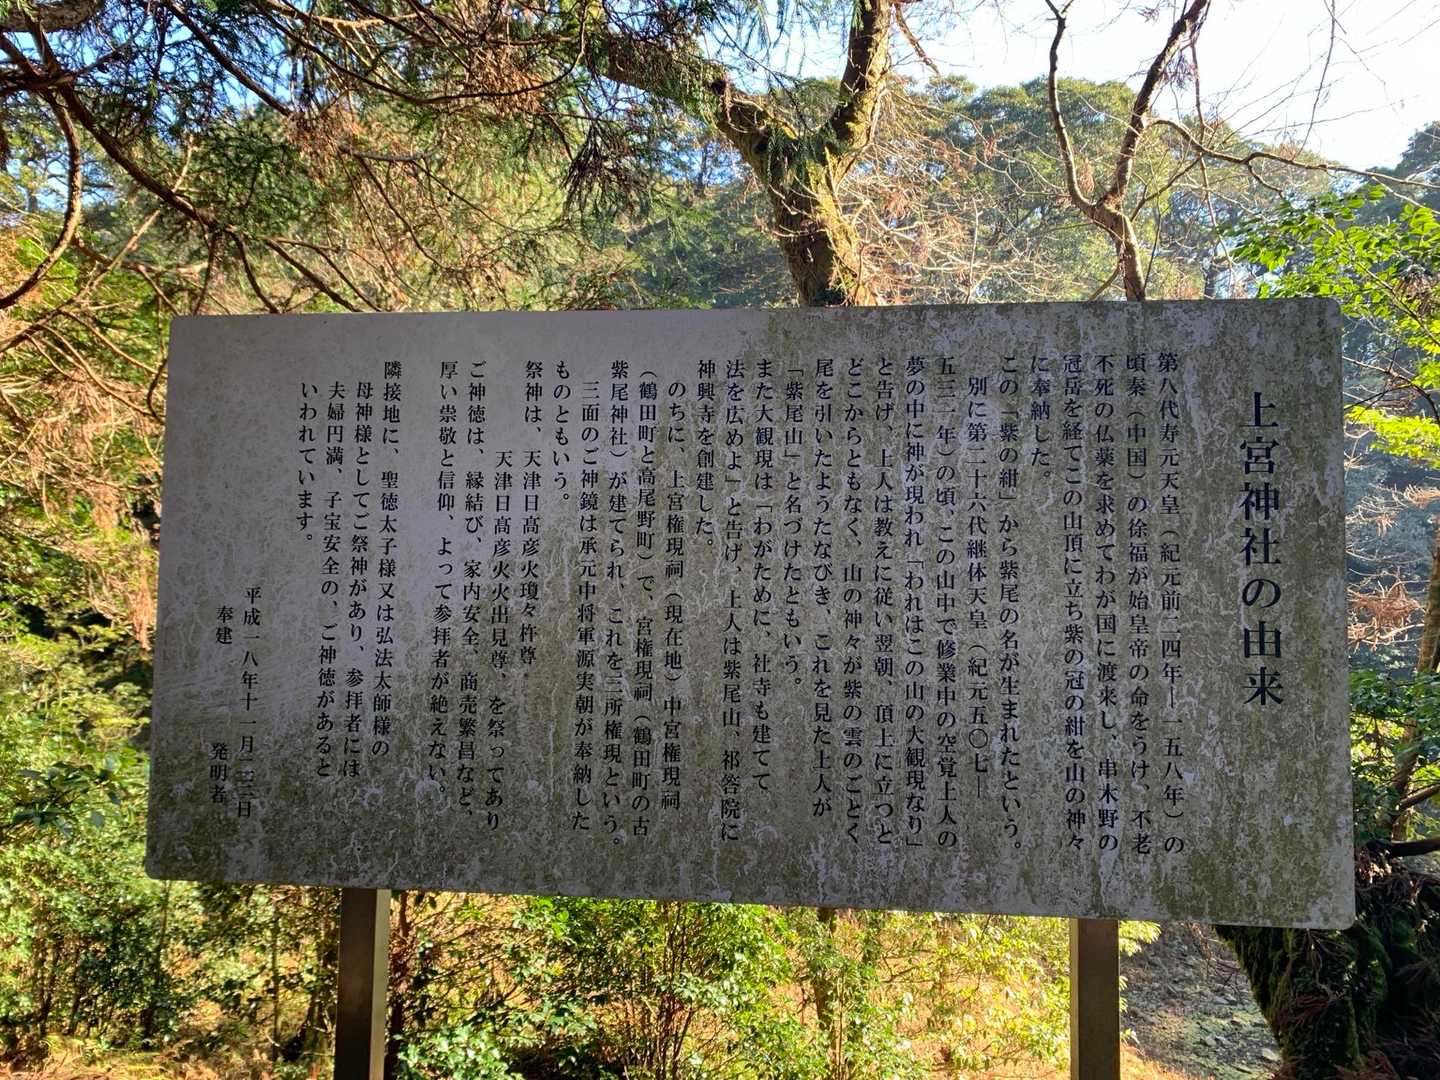 上宮神社の由来
第八代寿元天皇（紀元前二一四年―一五八年）の
頃秦（中国）の徐福が始皇帝の命をうけ、不老
不死の仏薬を求めてわが国に渡来し、串木野の
冠岳を経てこの山頂に立ち紫の冠の紺を山の神々
に奉納した。
この「紫の紺」から紫尾の名が生まれたという。
別に第二十六代継体天皇（紀元五〇七―
五三一年）の頃、この山中で修業中の空覚上人の
夢の中に神が現われ「われはこの山の大観現なり」
と告げ、上人は教えに従い翌朝、頂上に立つと
どこからともなく、山の神々が紫の雲のごとく
尾を引いたようたなびき、これを見た上人が
「紫尾山」と名づけたともいう。
また大観現は「わがために、社寺も建てて
法を広めよ」と告げ、上人は紫尾山、祁答院に
神興寺を創建した。
のちに、上宮権現祠（現在地）中宮権現祠
（鶴田町と高尾野町）で、宮権現祠（鶴田町の古
紫尾神社）が建てられ、これを三所権現という。
三面のご神鏡は承元中将軍源実朝が奉納した
ものともいう。
祭神は、天津日高彦火瓊々杵尊
天津日高彦火火出見尊、を祭ってあり
ご神徳は、縁結び、家内安全、商売繁昌など、
厚い崇敬と信仰、よって参拝者が絶えない。
隣接地に、聖徳太子様又は弘法太師様の
母神様としてご祭神があり、参拝者には
夫婦円満、子宝安全の、ご神徳があると
いわれています。
平成一八年十一月二三日
奉建　発明者